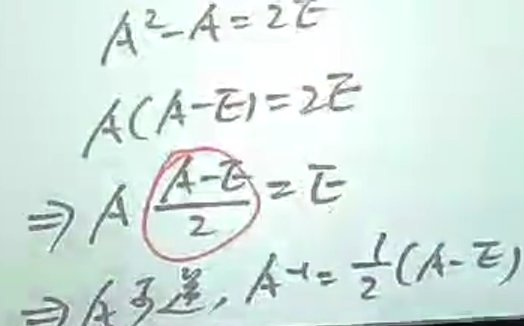 A²-A=2E
A(A-E)=2E
⇒ A (A-E)/2 = E
⇒ A可逆, A⁻¹=1/2(A-E)